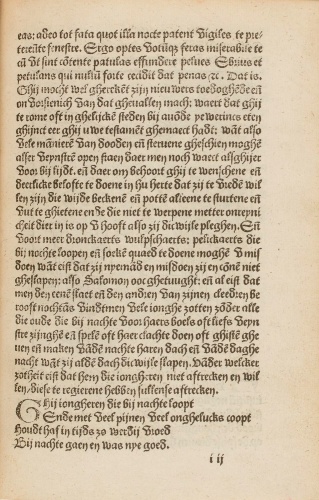 eas: adeo tot fata quot illa nocte patent vigiles te pre-
tereũte fenestre. Ergo optes votũq̃ feras miserabile te
cũ vt sint cõtente patulas effundere pelues Ebrius et
petulans qui nullũ forte cecidit dat penas ⁊c. Dat is.
Ghij mocht wel gherekẽt zijn nieuwers toeboghõde eñ
onvorsienich van dat ghevallen mach: waert dat ghij
te rome oft in ghelijcke steden bij auõde yewerincs etẽ
ghijnct eer ghij uwe testamẽt ghemaect hadt: wãt also
vele maniere van dooden eñ stervene gheschien moghẽ
alser veynstrẽ open staen daer men noch waect alsghijer
voor bij lijdt. eñ daer om behoort ghij te wenschene eñ
deerlicke belofte te doene in hu herte dat zij te vredẽ wil
len zijn die wijde beckenẽ eñ pottẽ alleene te sturtene eñ
vut te ghietene en̄de die niet te werpene metter onreyni
cheit dier in is op v hooft also zij dicwijle pleghen. Eñ
voort meer dronckaerts wulpschaerts: pelickaerts die
bij nochte loopen eñ sorckẽ quaed te doene moghẽ v mis
doen wãt eist dat zij nyemãd en misdoen zij en cõnẽ niet
gheslapen: also Salomon ooc ghetuught: eñ al eist dat
men den eenẽ slaet eñ den andren van zijnen cleedren be
rooft nochtãs vindtmen vele ionghe zotten zõder alle
die oude die bij nachte voor haers boels oft liefs veyn
stre zijnghẽ eñ spelẽ oft haer clachte doen oft ghistẽ ghe
uen eñ maken vãdẽ nachte haren dach eñ vãdẽ daghe
nacht wãt zij aldẽ dach dicwijle slapen. Vãder welcker
zotheit eist dat hem die iongheren niet aftrecken en wil
len, diese te regierene hebben sullense aftrecken.
Ghij iongheren die bij nachte loopt
Ende met veel pijnen veel onghelucks coopt
Houdt haf in tijds zo werdij vroed
Bij nachte gaen ey was nye goed.
i ij